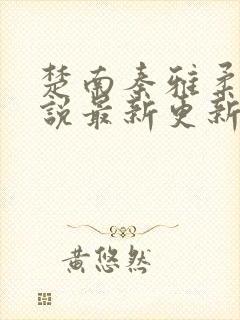 楚南秦雅柔
說最新更新
黃悠然